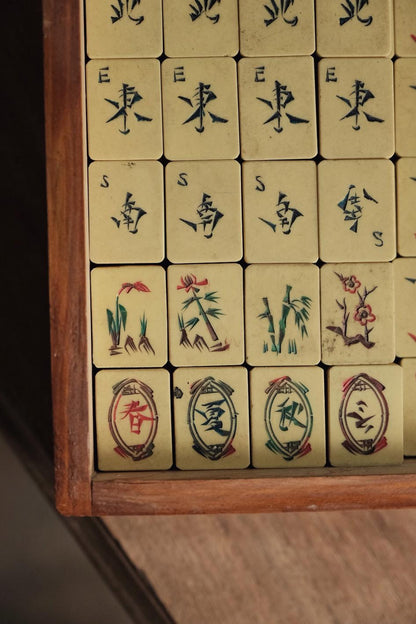 北 北 北 北
E 東 E 東 E 東 E 東
S 南 S 南 S 南 S 南
春 夏 秋 冬